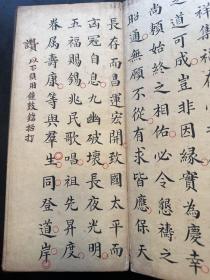 祥集
之道可成豈非因緣實為慶幸
尚賴始終之相佑必令懇禱之
昭通無願不從有求皆應保天
長存而昌運宏開致國太平而
冠自息九幽破壞長夜光明
五福賜錫兆民歌唱祖先昇度
眷屬壽康等與羣生同登道岸
讚 以下俱用鐘鼓鐺拾打